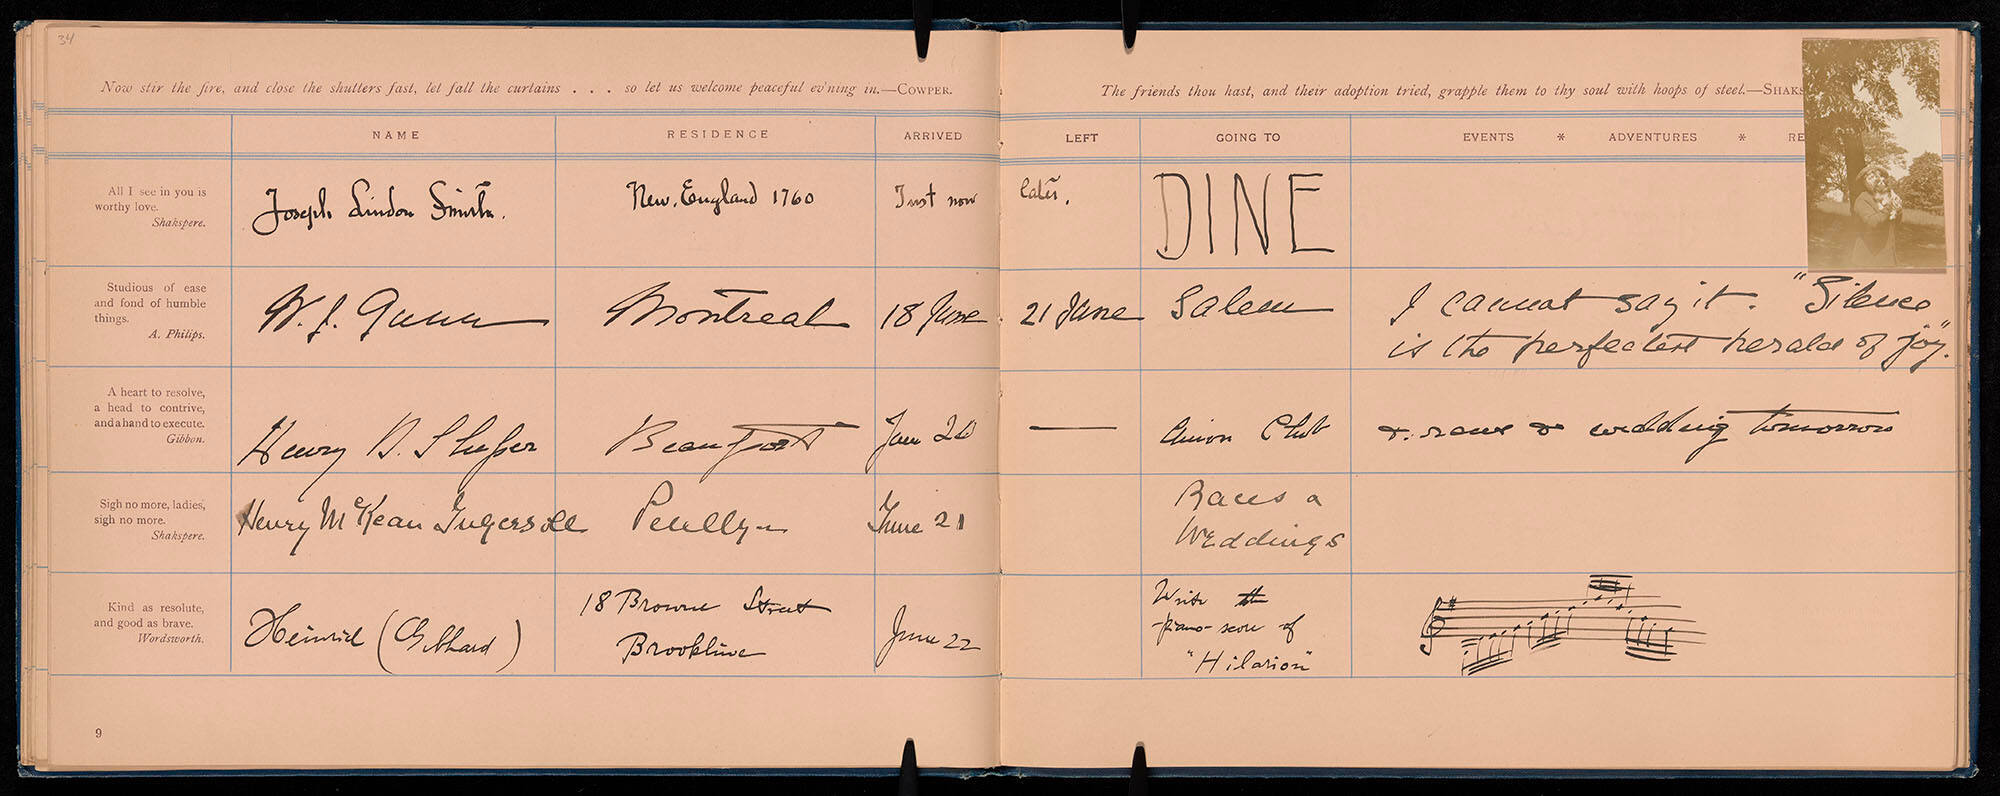 34
Now stir the fire, and close the shutters fast, let fall the curtains . . . so let us welcome peaceful ev'ning in.—COWPER.
The friends thou hast, and their adoption tried, grapple them to thy soul with hoops of steel.—SHAKS
NAME RESIDENCE ARRIVED LEFT GOING TO EVENTS * ADVENTURES * RE
All I see in you is
worthy love.
Shakspere.
Joseph Lindon Smith.
New. England 1760
Just now
later.
DINE
Studious of ease
and fond of humble
things.
A. Philips.
W. J. Gunn
Montreal
18 June
21 June
Salem
I cannot say it. "Silence
is the perfectest herald of joy".
A heart to resolve,
a head to contrive,
and a hand to execute.
Gibbon.
Henry D. Sleeper
Beauport
June 20
—
Union Club
wedding tomorrow
Sigh no more, ladies,
sigh no more.
Shakspere.
Henry McKean Ingersoll
Penllyn
June 21
Races a
Weddings
Kind as resolute,
and good as brave.
Wordsworth.
Heinrich (Gebhard)
18 Browne Street
Brookline
June 22
Write the
piano-score of
"Hilarion"
9